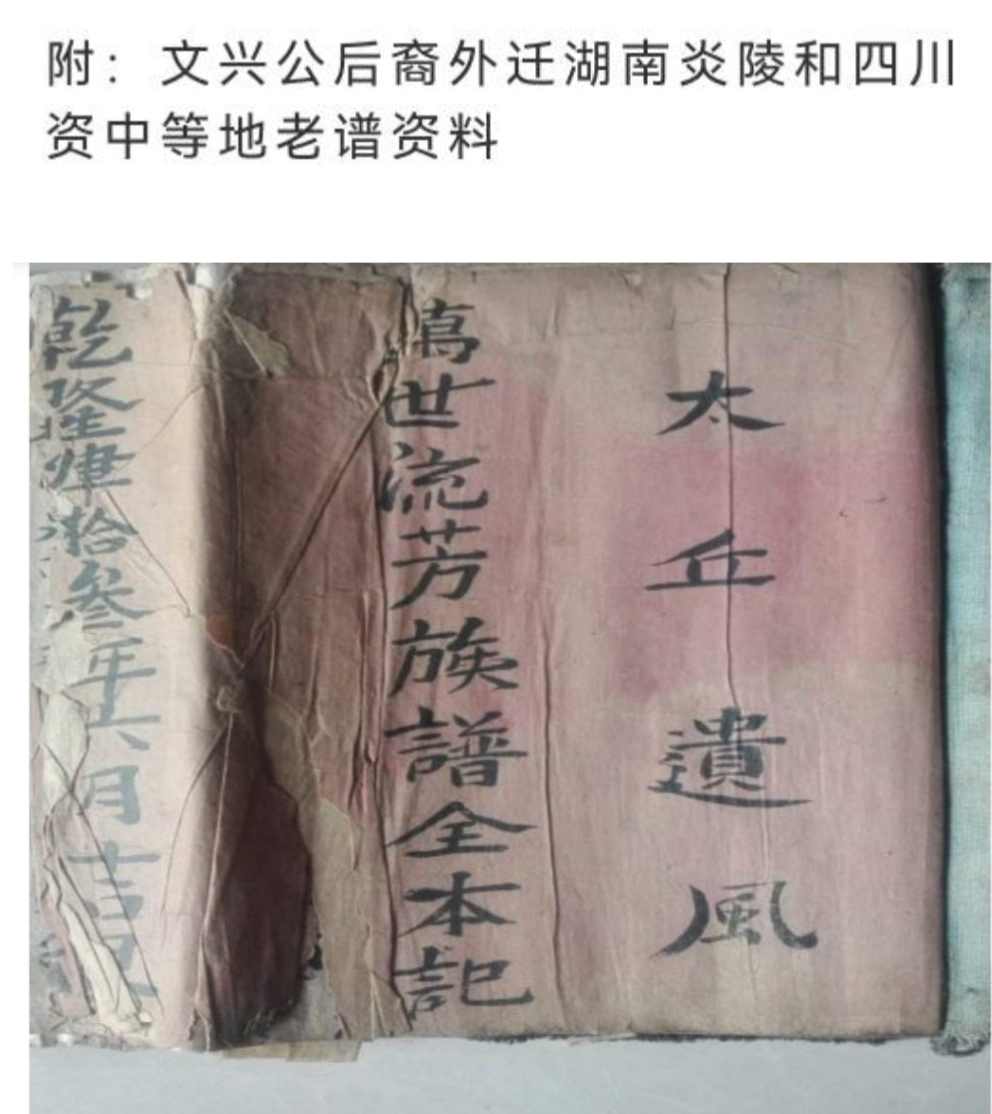 附：文兴公后裔外迁湖南炎陵和四川
资中等地老谱资料
太丘遺風
萬世流芳族譜全本記
乾隆肆拾叁年六月吉